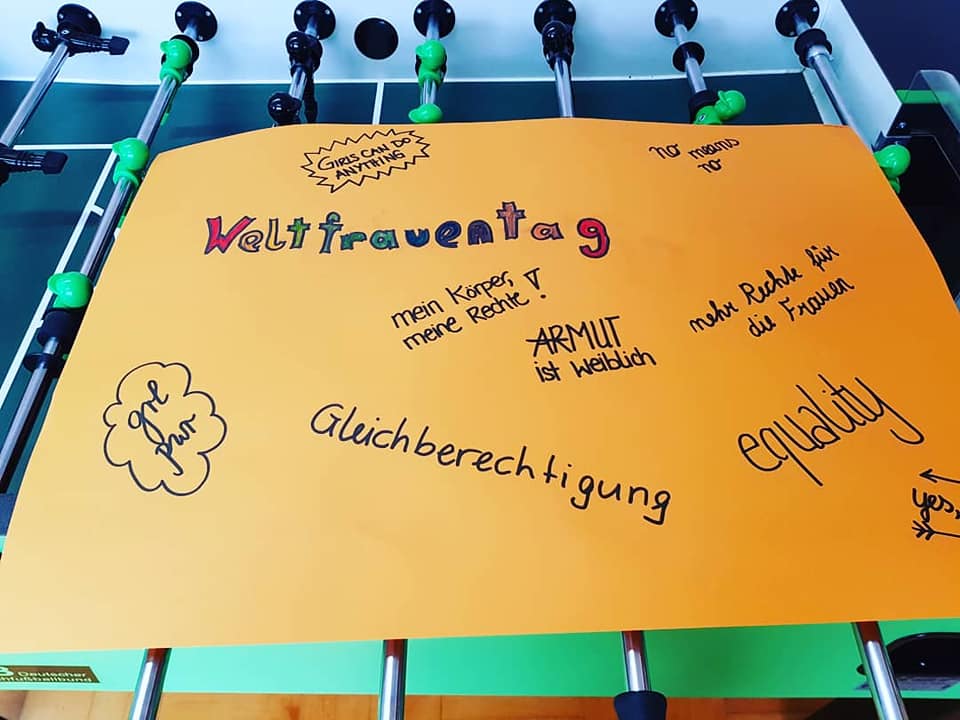 GIRLS CAN DO
ANYTHING
no means
no
Weltfrauentag
mein Körper,
meine Rechte!
mehr Rechte für
die Frauen
ARMUT
ist weiblich
grl
pwr
Gleichberechtigung
equality
yes,
Deutscher